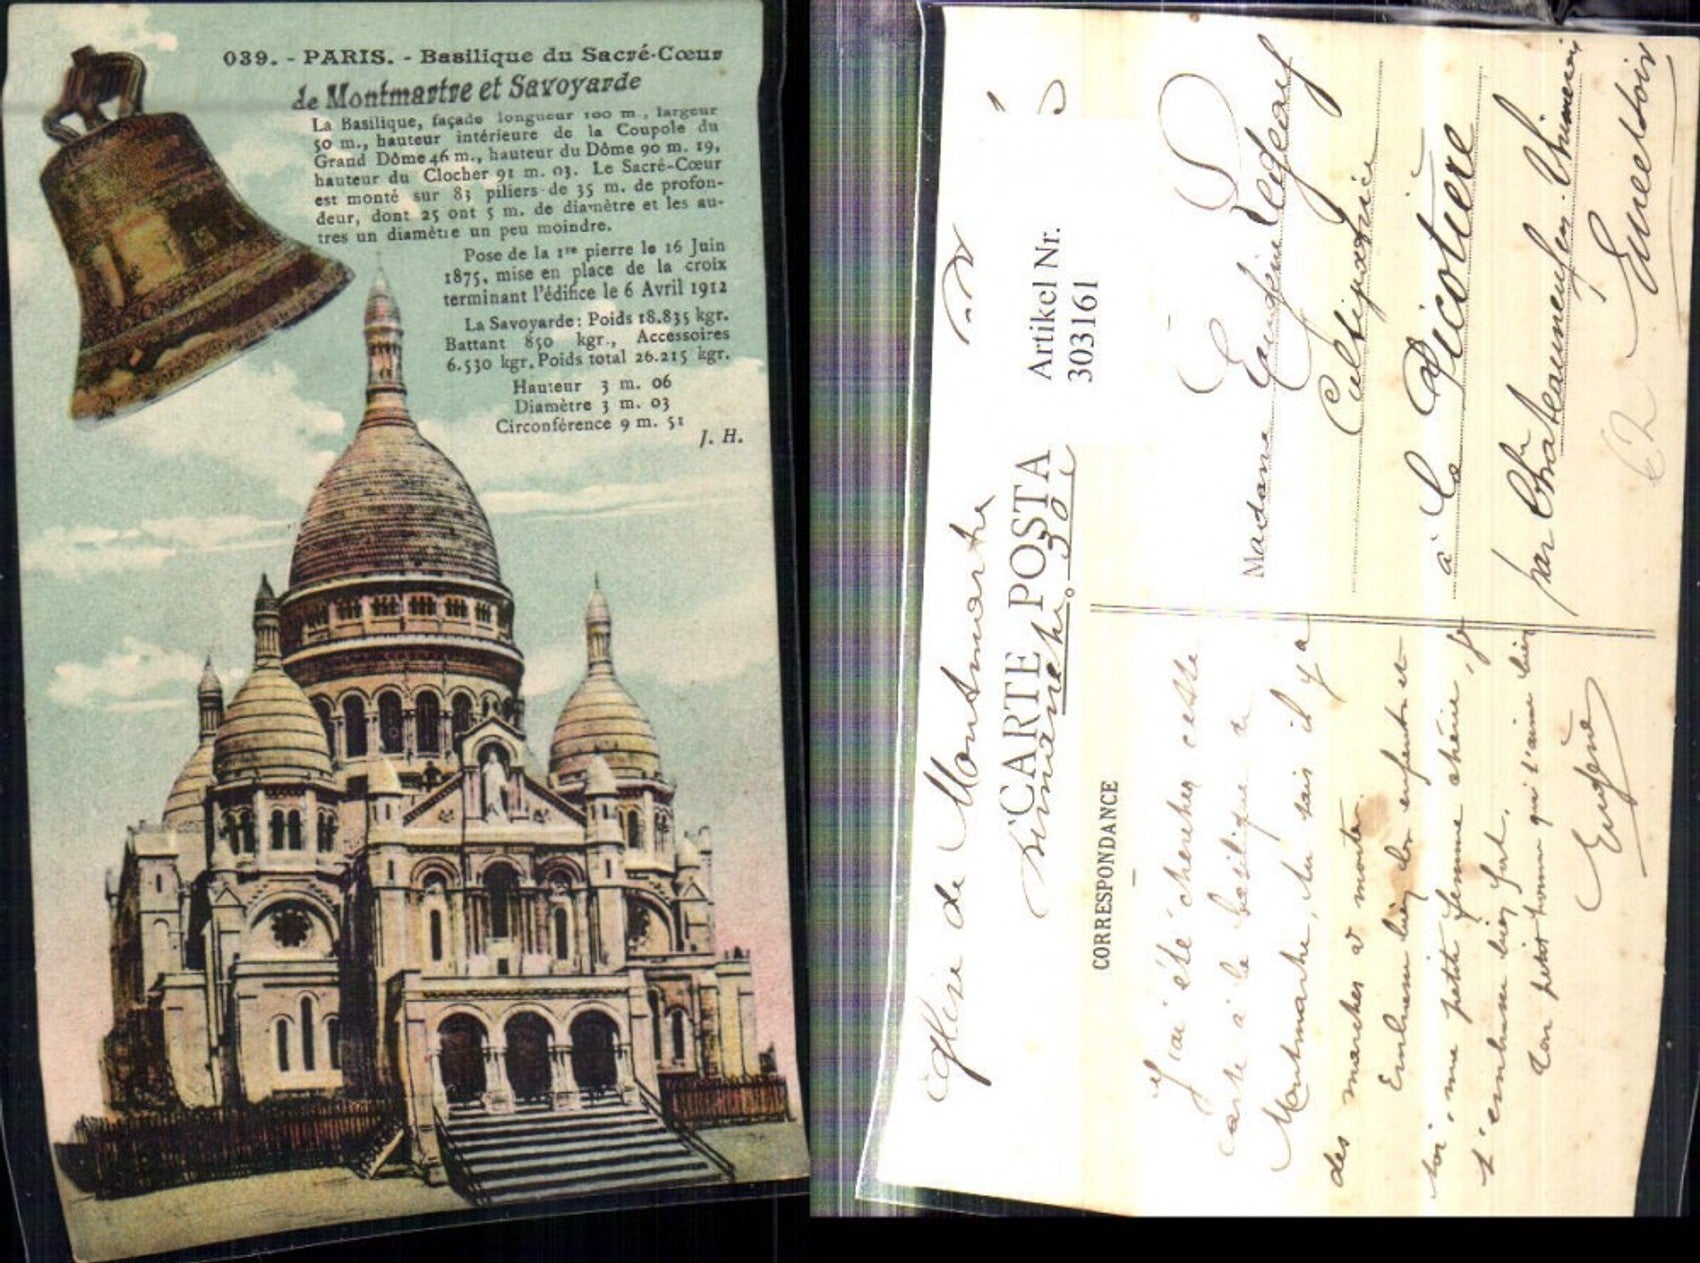 039. - PARIS. - Basilique du Sacré-Cœur
de Montmartre et Savoyarde
La Basilique, façade longueur 100 m., largeur
50 m., hauteur intérieure de la Coupole du
Grand Dôme 46 m., hauteur du Dôme 90 m. 19,
hauteur du Clocher 91 m. 03. Le Sacré-Cœur
est monté sur 83 piliers de 35 m. de profon-
deur, dont 25 ont 5 m. de diamètre et les au-
tres un diamètre un peu moindre.
Pose de la 1re pierre le 16 Juin
1875, mise en place de la croix
terminant l'édifice le 6 Avril 1912
La Savoyarde: Poids 18.835 kgr.
Battant 850 kgr., Accessoires
6.530 kgr. Poids total 26.215 kgr.
Hauteur 3 m. 06
Diamètre 3 m. 03
Circonférence 9 m. 51
J. H.
église de Montmartre
CARTE POSTA
Dimanche. 30
Artikel Nr.
303161
CORRESPONDANCE
J'ai été chercher cette
carte à la basilique de
Montmartre, tu sais il y a
des marches à monter.
Embrasse bien les enfants et
toi, ma petite femme chérie, je
t'embrasse bien fort.
Ton petit homme qui t'aime bien
Eugène
Madame Eugène
Cultivatrice
à la Picotière
par Châteauneuf en Thimerais
Eure et Loir
62